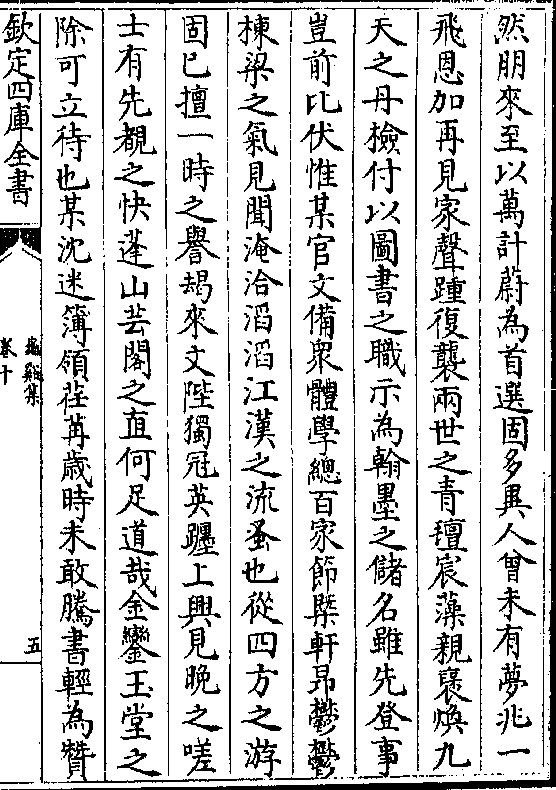 然朋來至以萬計蔚為首選固多異人曾未有夢兆一
飛恩加再見家聲踵復襲兩世之青氊宸藻親褒煥九
天之丹檢付以圖書之職示為翰墨之儲名雖先登事
豈前比伏惟某官文備衆體學總百家節槩軒昂鬱鬱
棟梁之氣見聞淹洽滔滔江漢之流蚤也從四方之游
固已擅一時之譽朅來文陛獨冠英躔上興見晚之嗟
士有先覩之快蓬山芸閣之直何足道哉金鑾玉堂之
除可立待也某沈迷簿領荏苒歲時未敢騰書輕為贄
欽定四庫全書
龜谿集
卷十
五